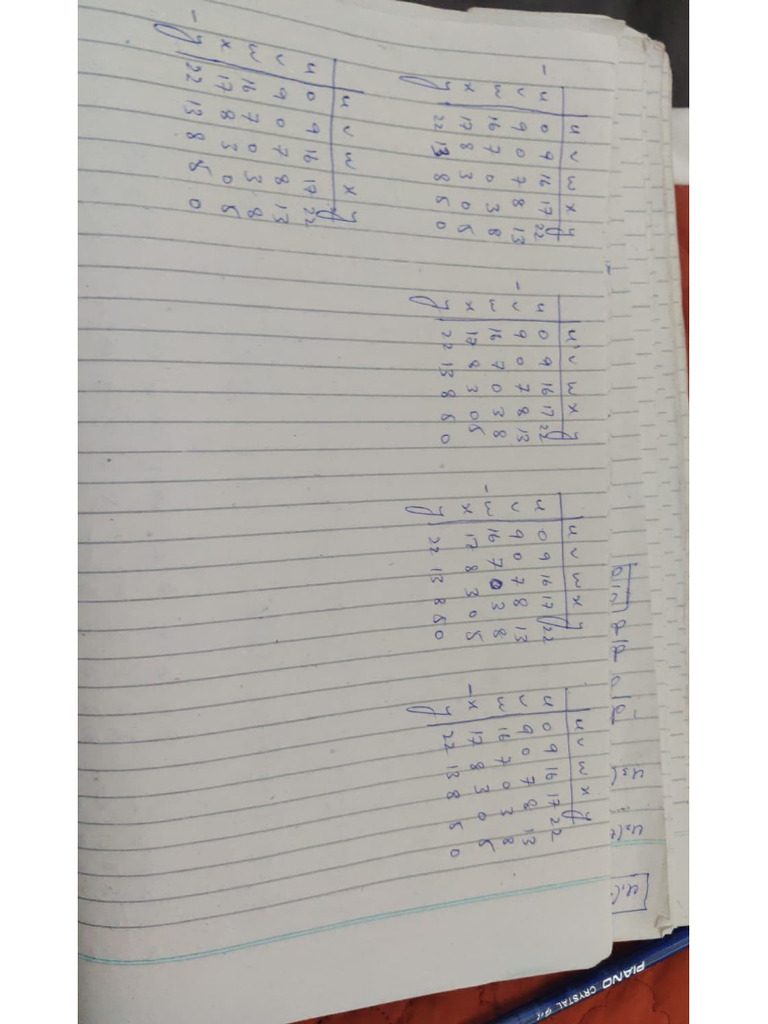 u v w x y
- u 0 9 16 17 22
v 9 0 7 8 13
w 16 7 0 3 8
x 17 8 3 0 5
y 22 13 8 5 0
u v w x y
u 0 9 16 17 22
- v 9 0 7 8 13
w 16 7 0 3 8
x 17 8 3 0 5
y 22 13 8 5 0
u v w x y
u 0 9 16 17 22
v 9 0 7 8 13
- w 16 7 0 3 8
x 17 8 3 0 5
y 22 13 8 5 0
u v w x y
u 0 9 16 17 22
v 9 0 7 8 13
w 16 7 0 3 8
- x 17 8 3 0 5
y 22 13 8 5 0
u v w x y
u 0 9 16 17 22
v 9 0 7 8 13
w 16 7 0 3 8
x 17 8 3 0 5
- y 22 13 8 5 0
PIANO CRYSTAL